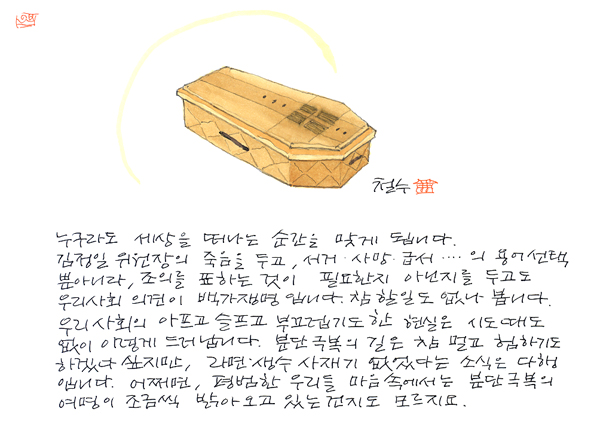 철수
누구라도 세상을 떠나는 순간을 맞게 됩니다.
김정일 위원장의 죽음을 두고, 서거·사망·급서····의 용어선택
뿐아니라, 조의를 표하는 것이 필요한지 아닌지를 두고도
우리사회 의견이 백가쟁명입니다. 참 할일도 없나 봅니다.
우리사회의 아프고 슬프고 부끄럽기도 한 현실은 시도때도
없이 이렇게 드러납니다. 분단극복의 길은 참 멀고 험하기도
하겠다 싶지만, 라면·생수 사재기 없었다는 소식은 다행
입니다. 어쩌면, 평범한 우리들 마음속에서는 분단극복의
여명이 조금씩 밝아오고 있는건지도 모르지요.